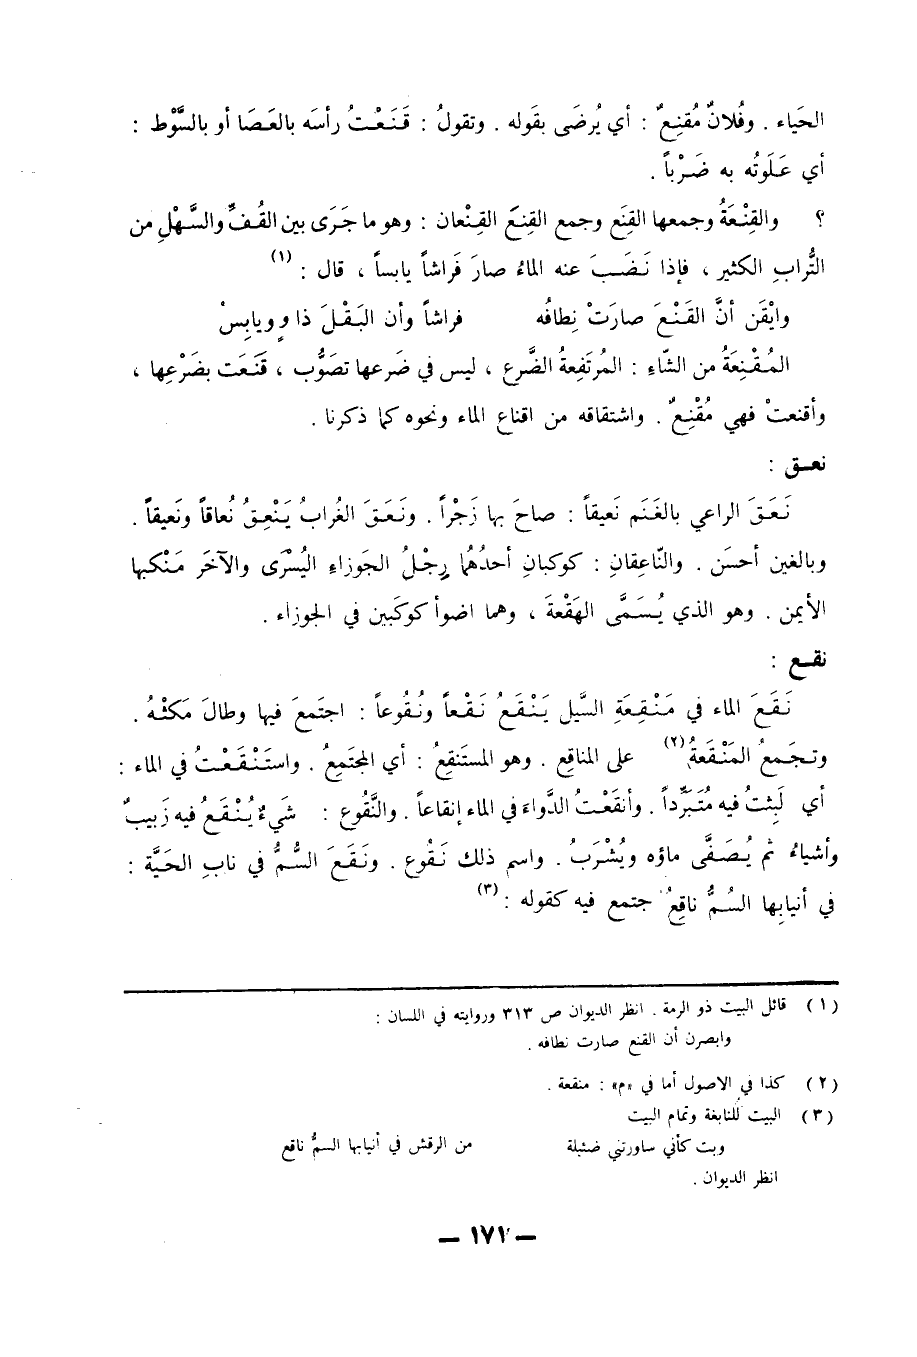 الحَياء . وفُلانٌ مُقنِعٌ : أي يُرضَى بقَوله . وتقولُ : قَنَعْتُ رأسَه بالعَصَا أو بالسَّوْط :
أي عَلَوتُه به ضَرْباً .
؟ والقِنْعَةُ وجمعها القِنَع وجمع القِنَع القِنْعان : وهو ما جَرَى بين القُفِّ والسَّهْلِ من
التُّرابِ الكثير ، فإذا نَضَبَ عنه الماءُ صارَ فَراشاً يابساً ، قال : (١)
وايْقَن أنَّ القَنْعَ صارَتْ نِطافُه فراشاً وأن البَقْلَ ذاوٍ ويابِسْ
المُقْنِعَةُ من الشّاءِ : المُرتَفِعةُ الضَّرع ، ليس في ضَرعها تصَوُّب ، قَنَعَت بضَرْعِها ،
وأقنعتْ فهي مُقْنِعٌ . واشتقاقه من اقناع الماء ونحوه كما ذكرنا .
نعق :
نَعَقَ الراعي بالغَنَم نَعيقاً : صاحَ بها زَجْراً . ونَعَقَ الغُرابُ يَنْعِقُ نُعاقاً ونَعيقاً .
وبالغين أحسَن . والنّاعِقانِ : كوكبانِ أحدُهُما رِجْلُ الجَوزاءِ اليُسْرَى والآخَر مَنْكبها
الأيمن . وهو الذي يُسَمَّى الهَقْعةَ ، وهما اضوأ كوكَبين في الجوزاء .
نقع :
نَقَعَ الماء في مَنْقِعَةِ السَّيل يَنْقَعُ نَقْعاً ونُقُوعاً : اجتَمعَ فيها وطالَ مَكثْهُ .
وتجَمعُ المَنْقَعةُ (٢) على المناقِع . وهو المستَنقِعُ : أي المجتَمِعُ . واستَنْقَعْتُ في الماء :
أي لَبِثتُ فيه مُتَبَرِّداً . وأنقَعْتُ الدَّواءَ في الماء إنقاعاً . والنَّقُوع : شَيءٌ يُنْقَعُ فيه زَبيبٌ
وأشياءُ ثم يُصَفَّى ماؤه ويُشْرَبُ . واسم ذلك نَقُوع . ونَقَعَ السُّمُّ في نابِ الحَيَّة :
في أنيابِها السُمُّ ناقِعُ جتمع فيه كقوله : (٣)
(١) قائل البيت ذو الرمة . انظر الديوان ص ٣١٣ وروايته في اللسان :
وابصرن أن القنع صارت نطافه .
(٢) كذا في الاصول أما في «م» : منقعة .
(٣) البيت للنابغة وتمام البيت
وبت كأني ساورتني ضئيلة من الرقش في أنيابها السمُّ ناقع
انظر الديوان .
— ١٧١ —